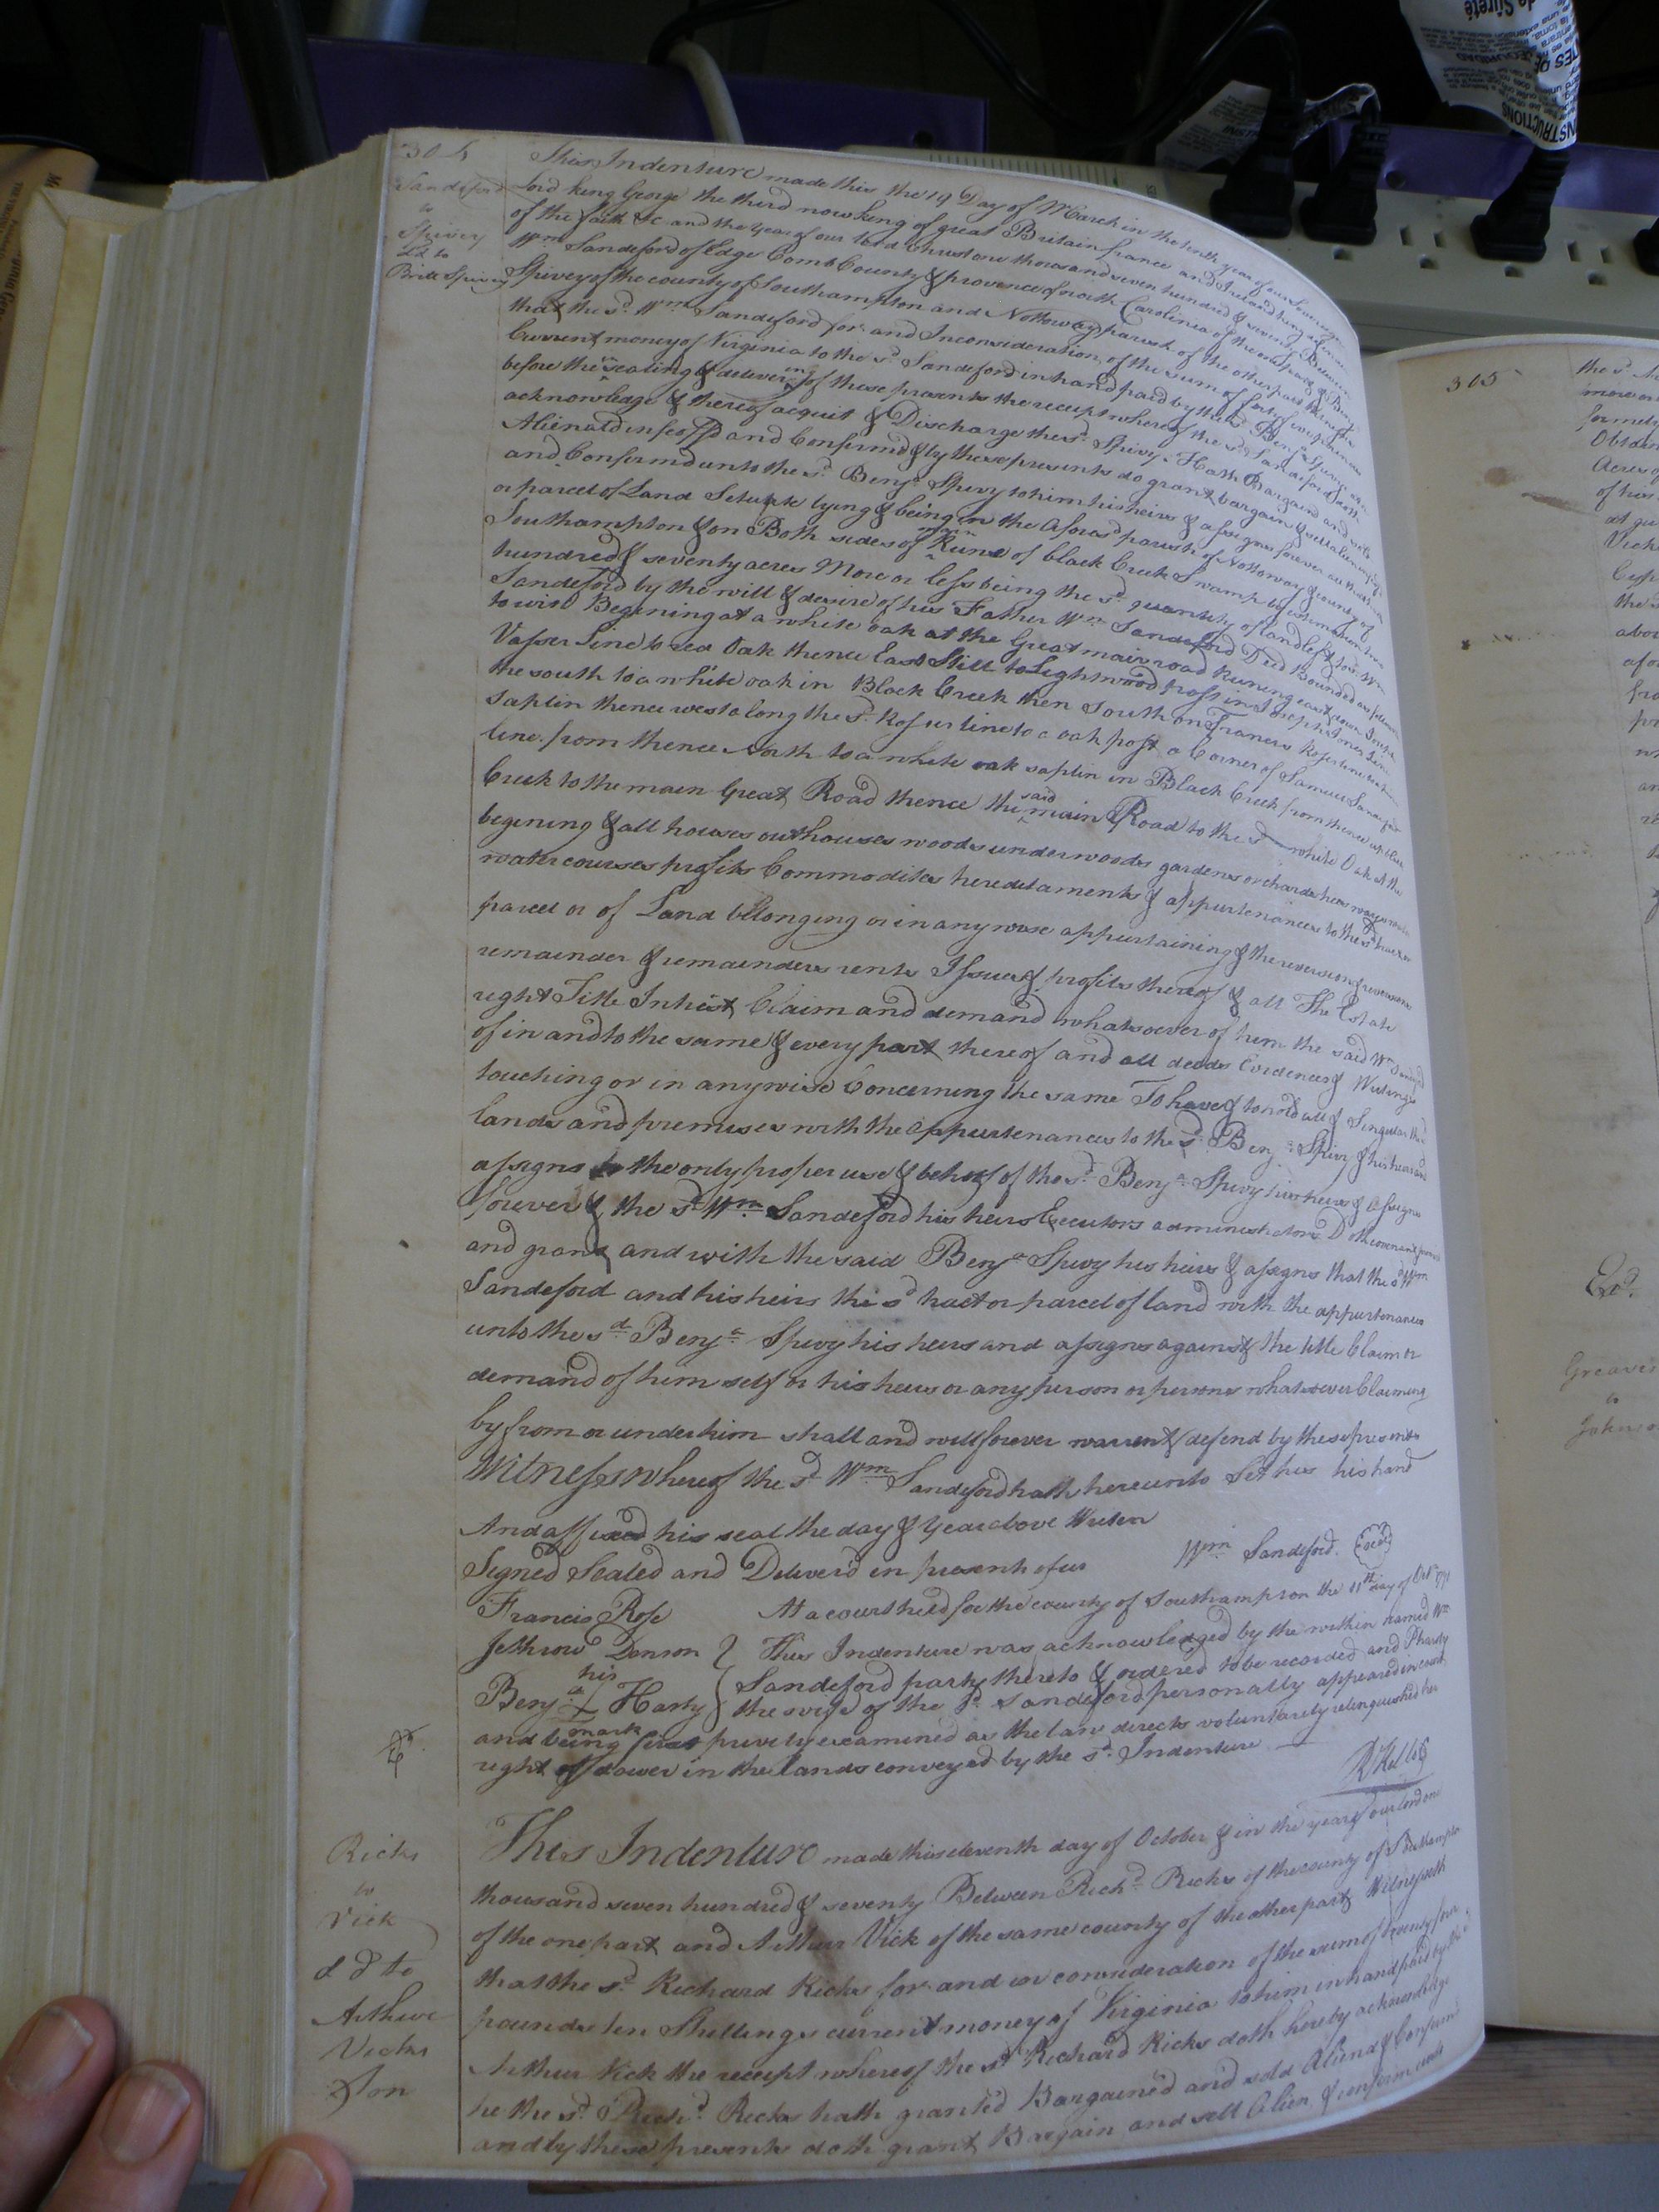 304
Sandeford
to
Spivey
Dd to
Britt Spivey
This Indenture made this the 19 Day of March in the tenth year of our Sovereign
Lord king George the third now king of great Britain france and Ireland king defender
of the faith &c and the year of our Lord Christ one thousand seven hundred & seventy Between
Wm Sandeford of Edge Comb County & provence of north Carolina of the one part & Benja
Spivey of the county of Southampton and Nottoway parish of the other part Witnesseth
that the sd Wm Sandeford for and Inconsideration of the sum of forty
Current money of Virginia to the sd Sandeford in hand paid by the sd Benja Spivy
before the ensealing & delivering of these presents the receipt whereof the sd Sandeford doth
acknowledge & thereof acquit & Discharge the sd Spivy Hath Bargaind and sold
Alienatd infeoff'd and Confirmd & by these presents do grant bargain & sell alien
and Confirmd unto the sd Benja Spivy to him his heirs & assigns forever all that
or parcel of Land Setuate lying & being in the Aforesd parish of Nottoway & county of
Southampton & on Both sides of main Runs of black Creek Swamp by estimation two
hundred & seventy acres More or less being the sd quantity of land left to sd Wm
Sandeford by the will & desire of his Father Wm Sandeford Decd Bounded as followeth
to wit Begening at a white oak at the Great main road Runing east down Joseph
Vasser Line to red Oak thence East Still to Lightwood post in Joseph Jones Line
the south to a white oak in Black Creek then South on Francis Roses line to
saplin thence west along the sd Roses line to a oak post a Corner of Samuel Sandeford
line from thence North to a white oak saplin in Black Creek from thence up Black
Creek to the main Great Road thence the said main Road to the sd white Oak at the
begening & all houses outhouses woods underwoods gardens orchards
water courses profits Commodites heredetaments & appurtenances to the sd tract or
parcel or of Land belonging or in any wise appurtaining & the reversion & reversions
remainder & remainders rents Issues & profits thereof & all The Estate
right Title Intrest Claim and demand whatsoever of him the said Wm Sandeford
of in and to the same & every part thereof and all deeds Evidences & Writings
touching or in anywise Concerning the same To have & to hold all & Singular the
lands and premises with the appurtenances to the sd Benja Spivy & his heirs and
assigns to the only proper use & behoof of the sd Benja Spivy his heirs & Assigns
forever & the sd Wm Sandeford his heirs Executors administrators Doth covenant
and grant and with the said Benja Spivy his heirs & assigns that the sd Wm
Sandeford and his heirs the sd tract or parcel of land with the appurtenances
unto the sd Benja Spivy his heirs and assigns against the title Claim or
demand of him self or his heirs or any person or persons whatsoever Claiming
by from or under him shall and will forever warrent & defend by these presents
Witness whereof the sd Wm Sandeford hath hereunto Set his his hand
And affixed his seal the day & Year above Writen
Signed Sealed and Deliver'd in presents of us
Wm Sandeford. Seal
Francis Rose
Jethrow Denson
Benja his X mark Harty
At a court held for the county of Southampton the 11th day of Octr 1770
This Indenture was acknowledged by the within named Wm
Sandeford party thereto & ordered to be recorded and
the wife of the sd Sandeford personally appeared in court
and being first privily examined as the law directs voluntarely relinquished her
right of dower in the lands conveyed by the sd Indenture
Ricks
to
Vick
d d to
Arthur
Vicks
Son
This Indenture made this eleventh day of October & in the year of our Lord one
thousand seven hundred & seventy Between Richd Ricks of the county of Southampton
of the one part and Arthur Vick of the same county of the other part Witnesseth
that the sd Richard Ricks for and in consideration of the sum of twenty four
pounds ten Shillings current money of Virginia to him in hand paid by the sd
Arthur Vick the receipt whereof the sd Richard Ricks doth hereby acknowledge
he the sd Richd Ricks hath granted Bargained and sold Aliend & Confirmd
and by these presents doth grant Bargain and sell Alien & confirm unto
305
Exd.
Greaves
to
Johnson